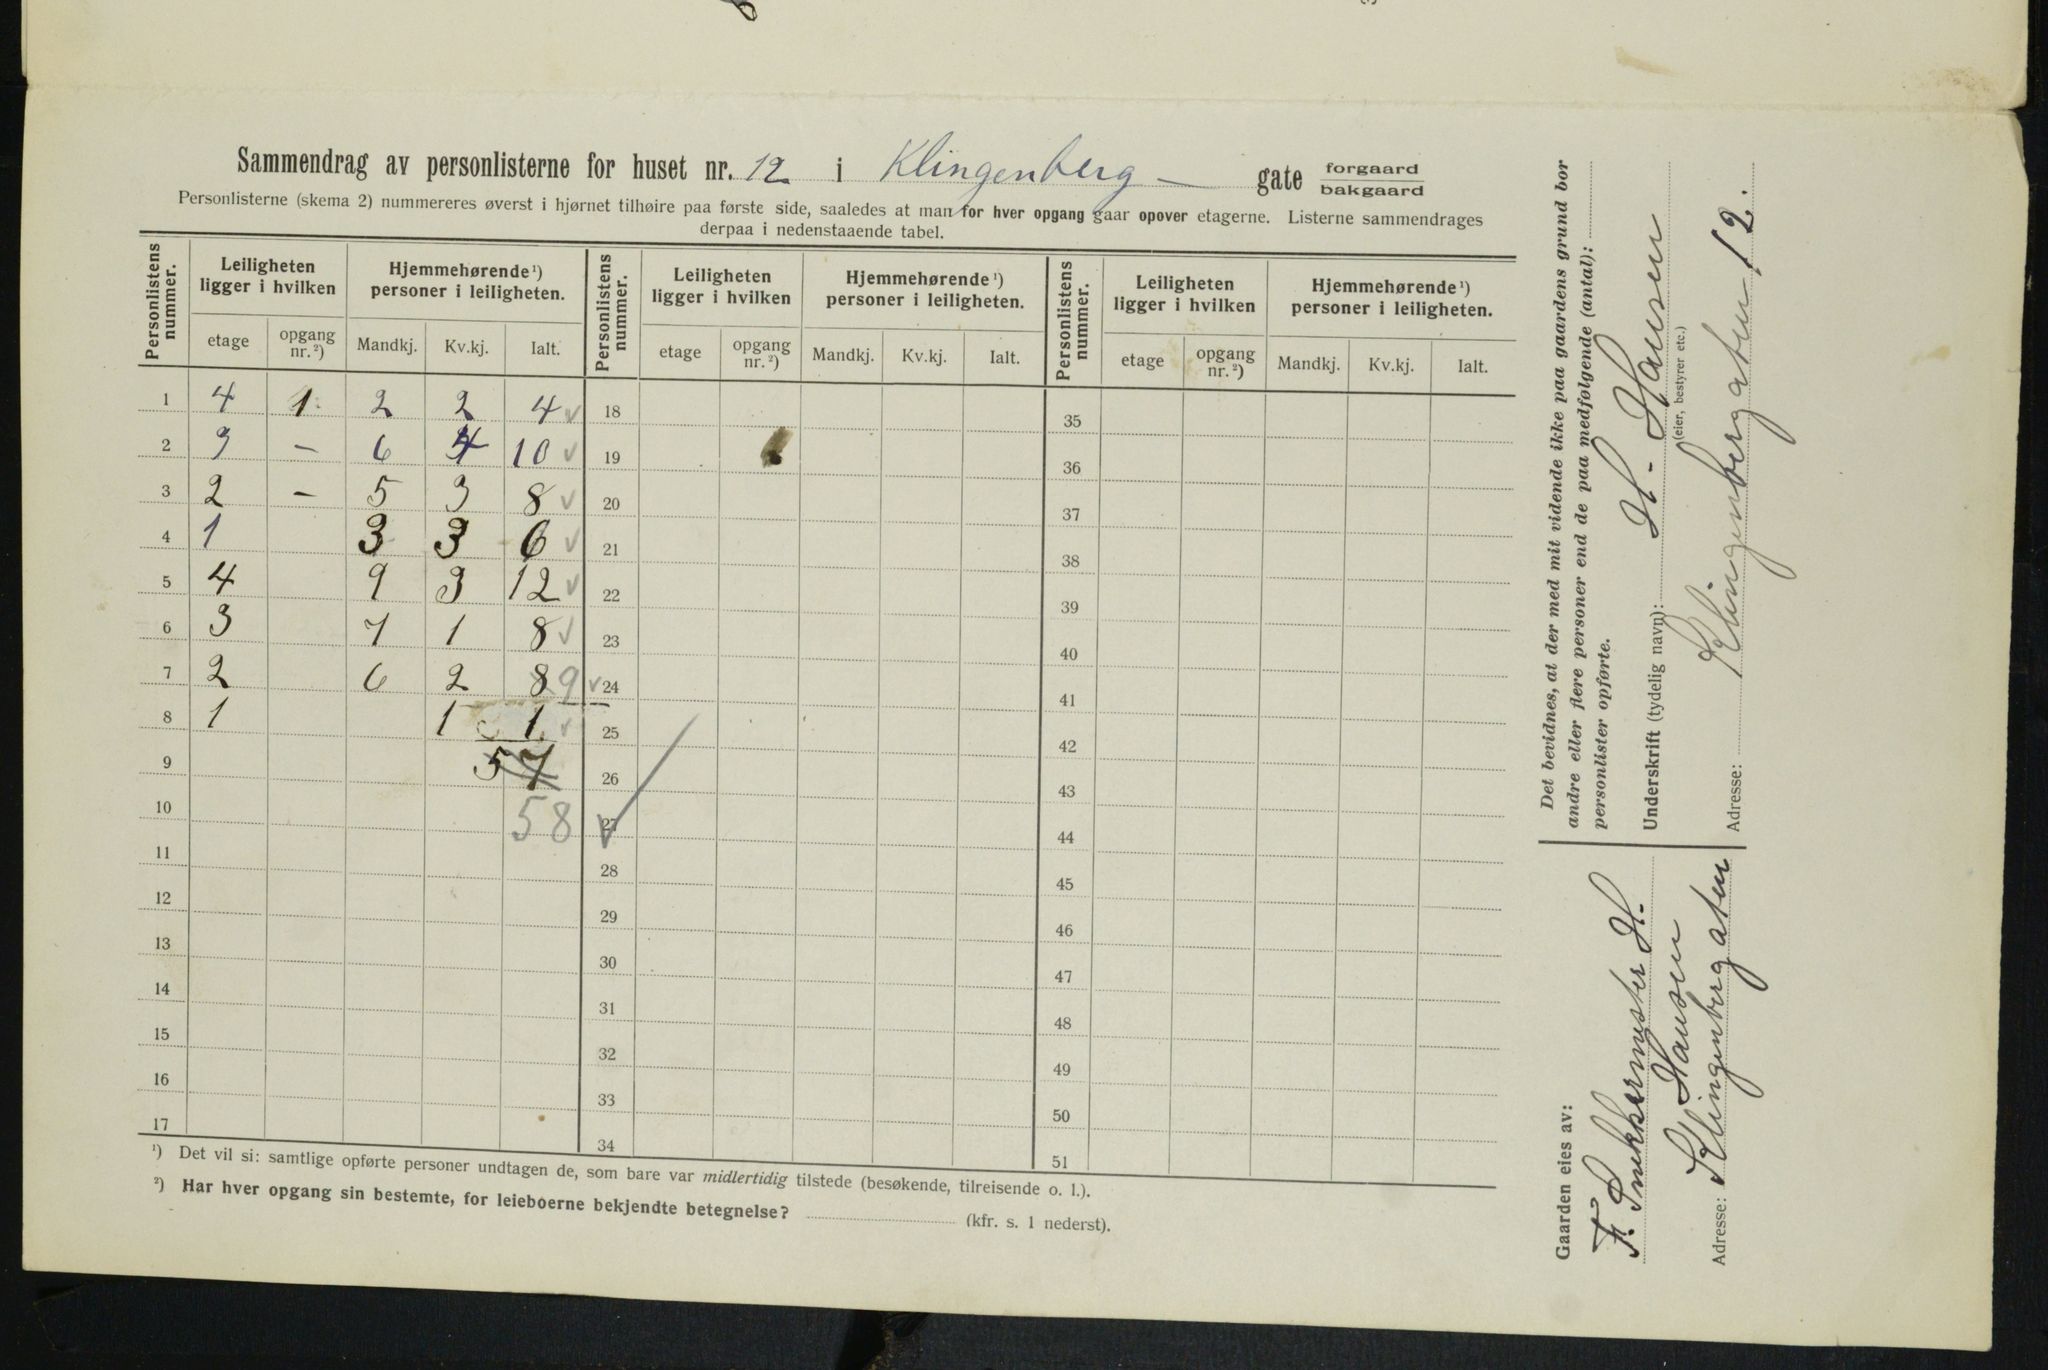 Sammendrag av personlisterne for huset nr. 12 i Klingenberg — gate forgaard bakgaard
Personlisterne (skema 2) nummereres øverst i hjørnet tilhøire paa første side, saaledes at man for hver opgang gaar opover etagerne. Listerne sammendrages
derpaa i nedenstaaende tabel.
Personlistens nummer. Leiligheten ligger i hvilken Hjemmehørende ¹) personer i leiligheten. Personlistens nummer. Leiligheten ligger i hvilken Hjemmehørende ¹) personer i leiligheten. Personlistens nummer. Leiligheten ligger i hvilken Hjemmehørende ¹) personer i leiligheten.
etage opgang nr. ²) Mandkj. Kv.kj. Ialt. etage opgang nr. ²) Mandkj. Kv.kj. Ialt. etage opgang nr. ²) Mandkj. Kv.kj. Ialt.
1 4 1 2 2 4 18 35
2 3 – 6 4 10 19 36
3 2 – 5 3 8 20 37
4 1 3 3 6 21 38
5 4 9 3 12 22 39
6 3 7 1 8 23 40
7 2 6 2 8 9 24 41
8 1 1 1 25 42
9 57 26 43
10 58 27 44
11 28 45
12 29 46
13 30 47
14 31 48
15 32 49
16 33 50
17 34 51
¹) Det vil si: samtlige opførte personer undtagen de, som bare var midlertidig tilstede (besøkende, tilreisende o. l.).
²) Har hver opgang sin bestemte, for leieboerne bekjendte betegnelse? (kfr. s. 1 nederst).
Det bevidnes, at der med mit vidende ikke paa gaardens grund bor
andre eller flere personer end de paa medfølgende (antal):
personlister opførte.
Underskrift (tydelig navn): H. Hansen
(eier, bestyrer etc.)
Adresse: Klingenberggaten 12.
Gaarden eies av:
H.
Hansen
Adresse: Klingenberggaten